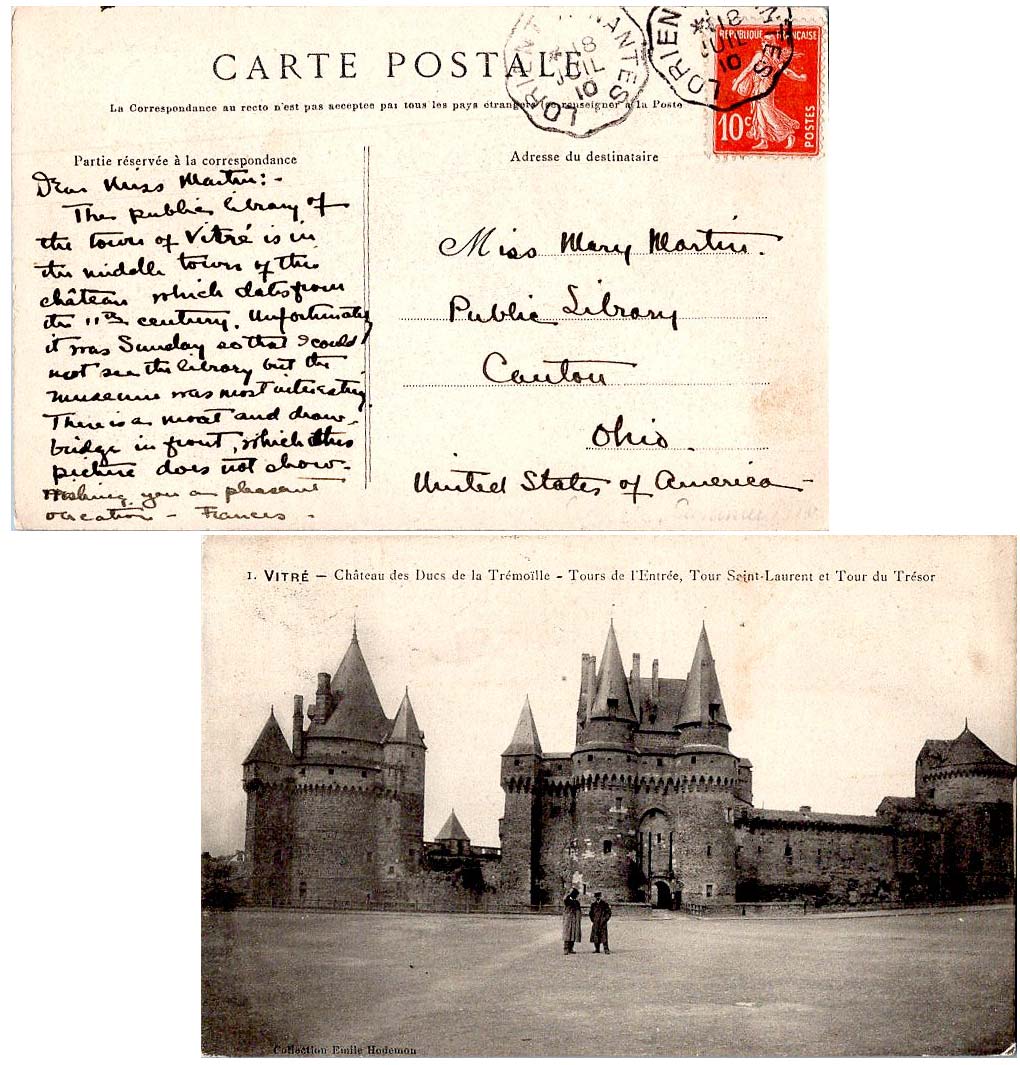 CARTE POSTALE
La Correspondance au recto n'est pas acceptee par tous les pays étrangers (se renseigner à la Poste
LORIENT NANTES
18
JUIL
10
LORIEN
18
JUIL
10
TES
REPUBLIQUE FRANÇAISE
10c
POSTES
Partie réservée à la correspondance
Dear Miss Martin:-
The public library of
the town of Vitré is in
the middle tower of this
château which dates from
the 11th century. Unfortunately
it was Sunday so that I could
not see the library but the
museum was most interesting.
There is a moat and draw-
bridge in front, which this
picture does not show-
Wishing you a pleasant
vacation - Frances -
Adresse du destinataire
Miss Mary Martin.
Public Library
Canton
Ohio.
United States of America-
1. VITRÉ — Château des Ducs de la Trémoïlle - Tours de l'Entrée, Tour Saint-Laurent et Tour du Trésor
Collection Emile Hodemon